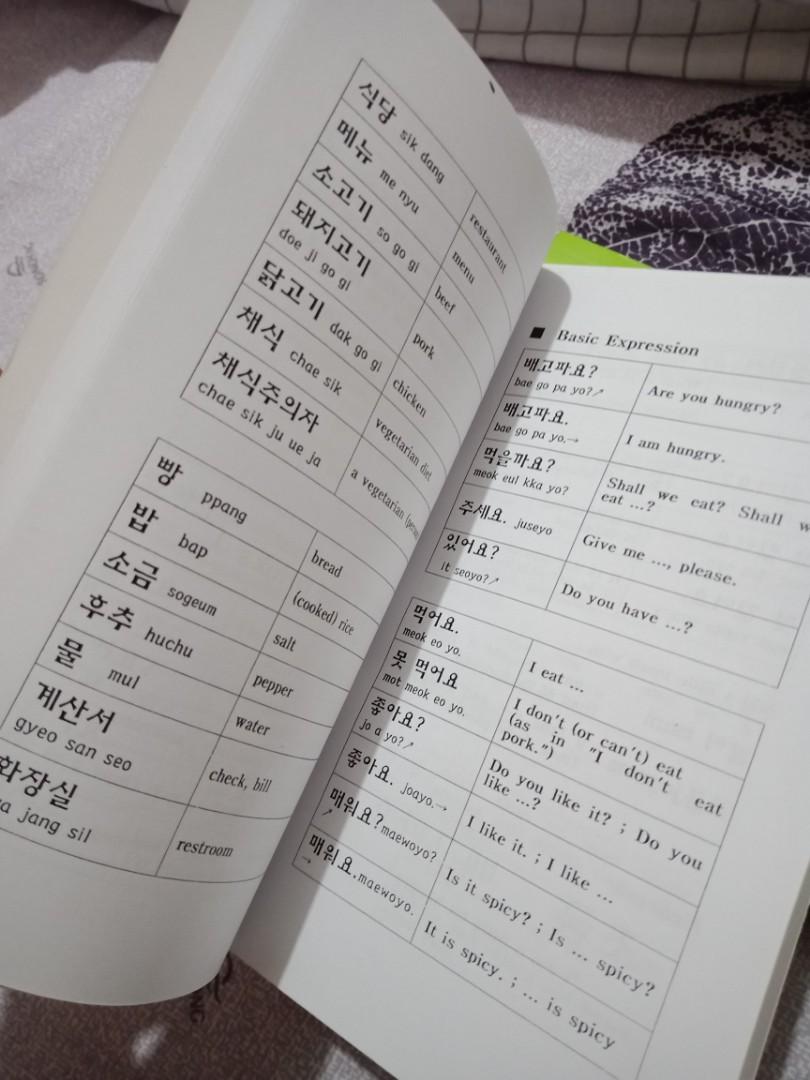 식당 sik dang restaurant
메뉴 me nyu menu
소고기 so go gi beef
돼지고기 pork
doe ji go gi
닭고기 dak go gi chicken
채식 chae sik vegetarian diet
채식주의자 a vegetarian
chae sik ju ue ja
빵 ppang bread
밥 bap (cooked) rice
소금 sogeum salt
후추 huchu pepper
물 mul water
계산서 check, bill
gyeo san seo
화장실 restroom
jang sil
■ Basic Expression
배고파요? Are you hungry?
bae go pa yo?↗
배고파요. I am hungry.
bae go pa yo.→
먹을까요? Shall we eat? Shall
meok eul kka yo? eat ...?
주세요. juseyo Give me ..., please.
있어요? Do you have ...?
it seoyo?↗
먹어요. I eat ...
meok eo yo.
못 먹어요 I don't (or can't) eat
mot meok eo yo. (as in "I don't eat
pork.")
좋아요? Do you like it? ; Do you
jo a yo?↗ like ...?
좋아요. joayo.→ I like it. ; I like ...
매워요?maewoyo? Is it spicy? ; Is ... spicy?
↗
매워요.maewoyo. It is spicy. ; ... is spicy
→